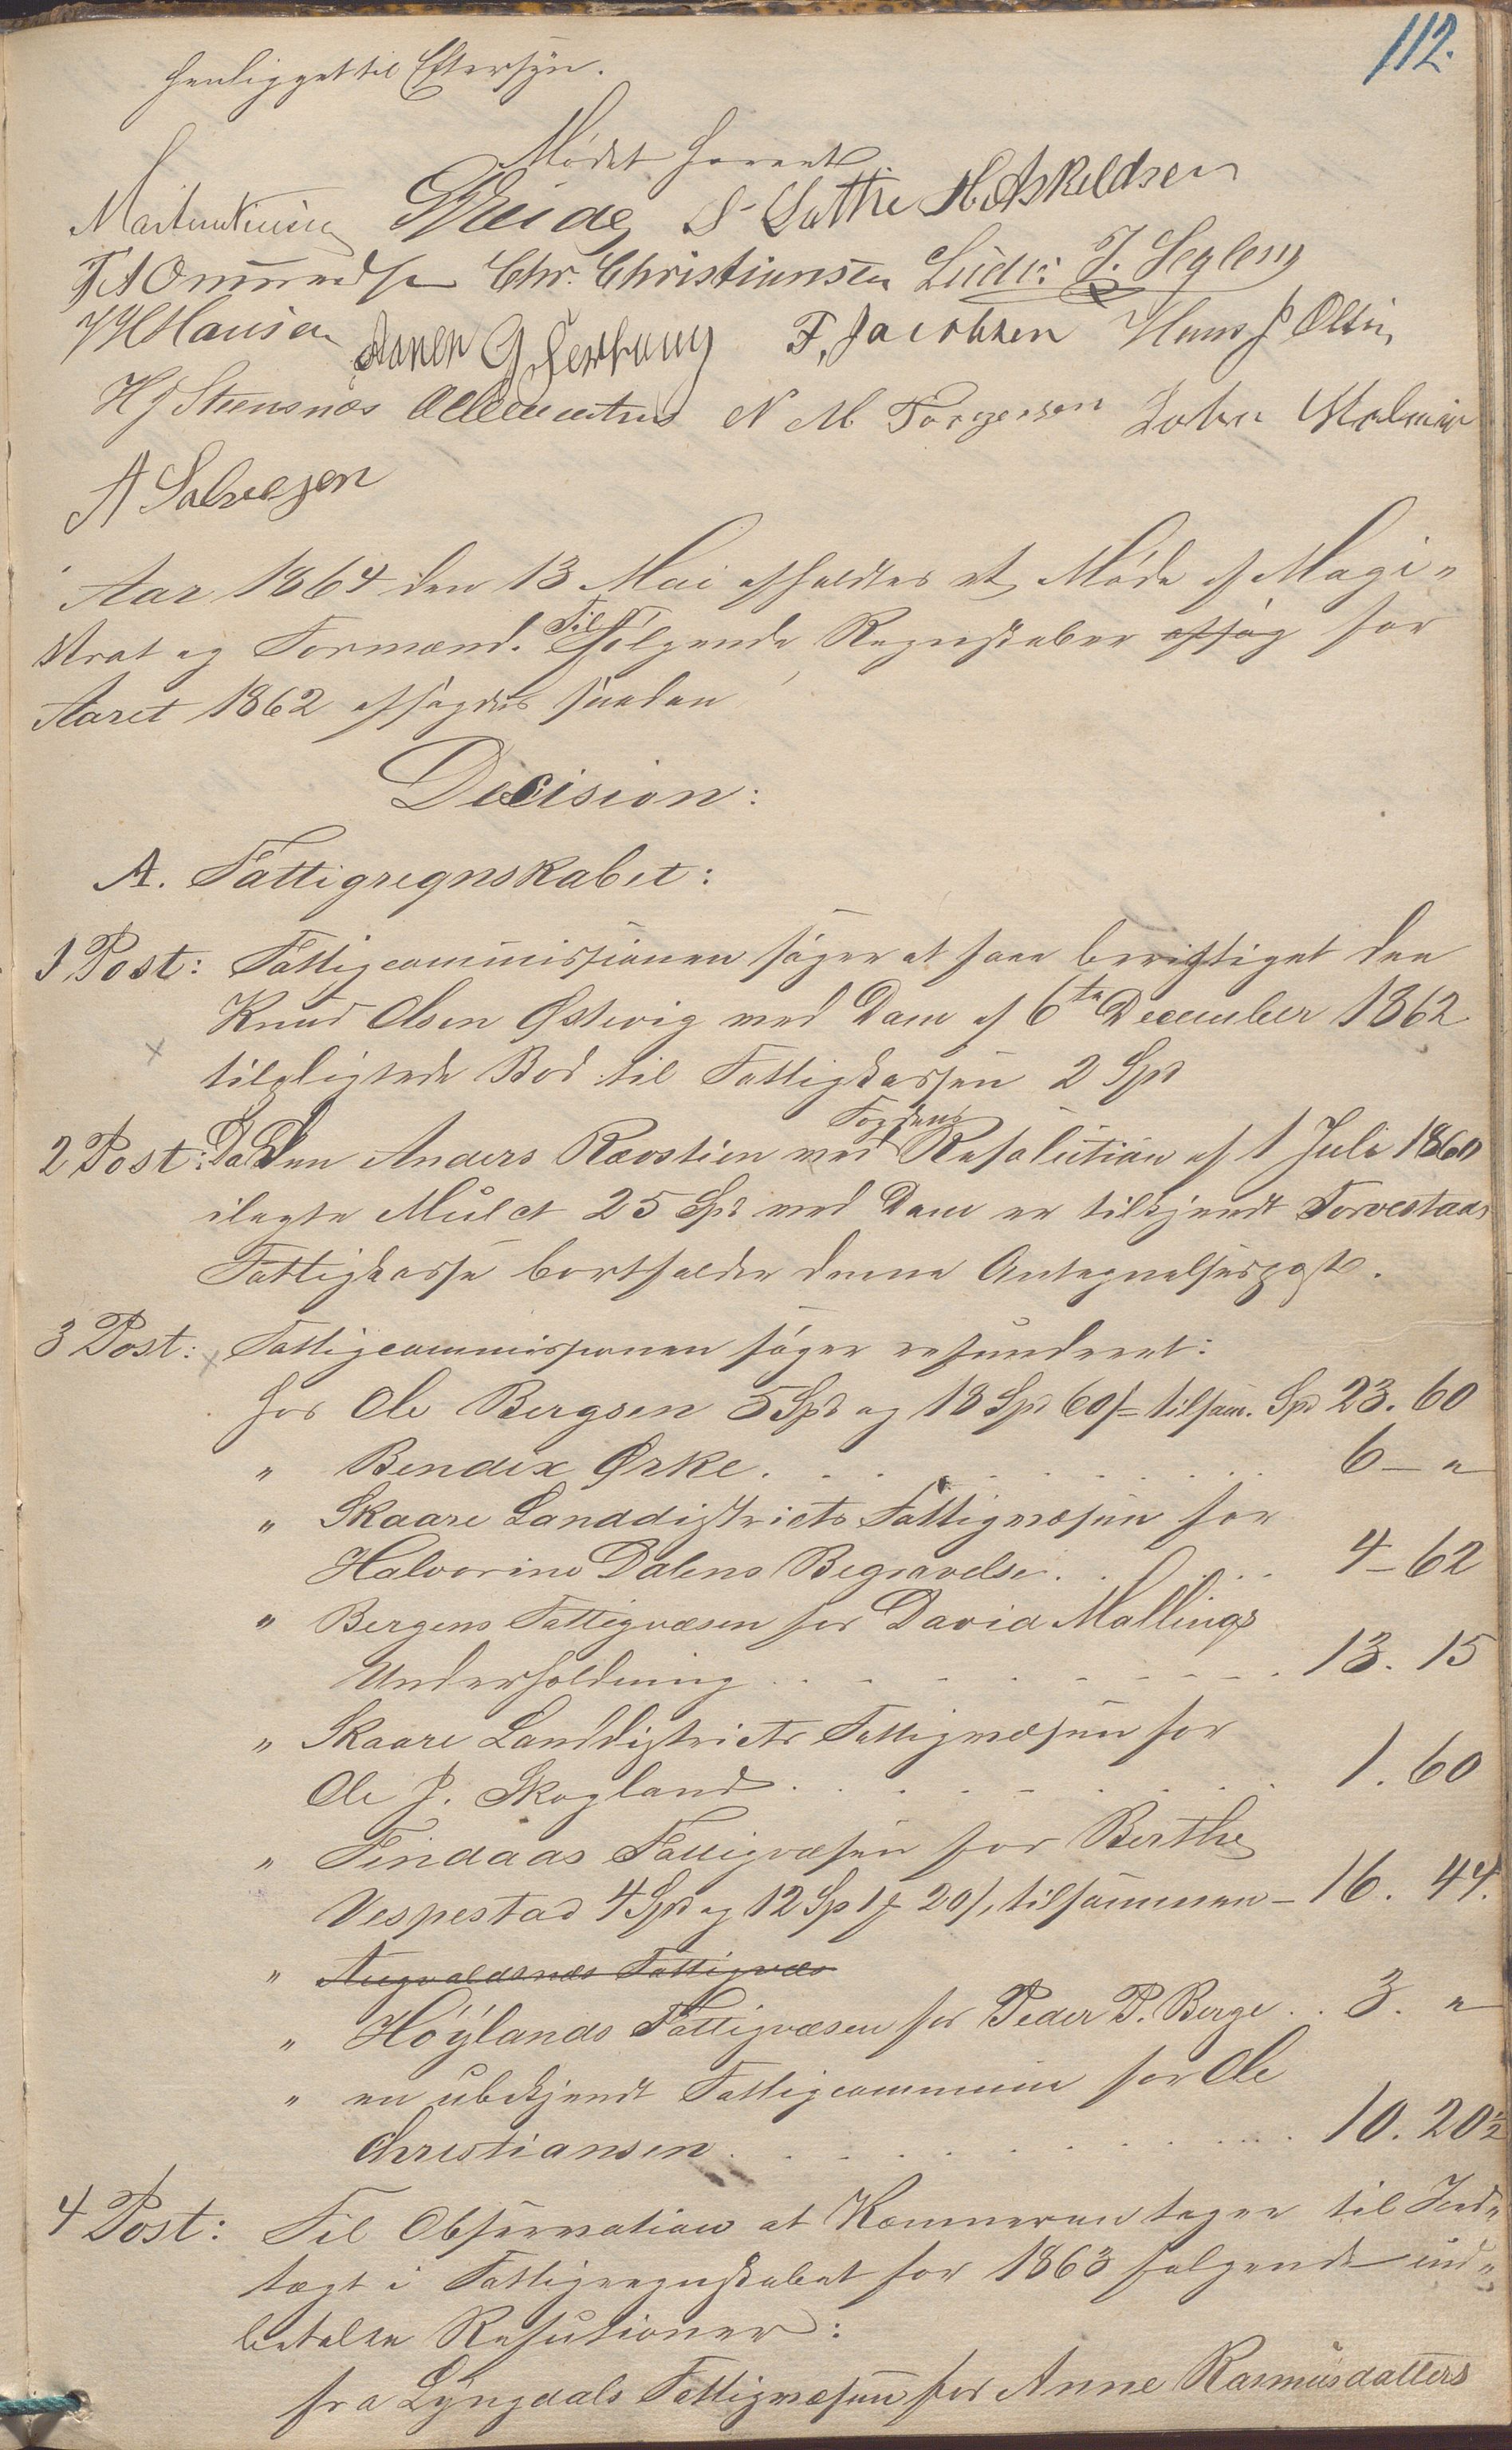 112.
henligget til Eftersyn.
Mødet hævet
G Eide L Lothe H. Askeldsen
Chr. Christiansen J. Segleng
Hansen F. Jacobsen Hans J Olsen
H J Steensnæs N M Torgersen John
A Salvesen
Aar 1864 den 13 Mai afholdtes et Møde af Magi-
strat og Formænd. Til følgende Regnskaber afsag for
Aaret 1862 afsagdes saadan
Decision:
A. Fattigregnskabet:
1 Post: Fattigcommissionen søger at faae berigtiget den
Knud Olsen Østevig ved Dom af 6te December 1862
tilpligtede Bod til Fattigkassen 2 Spd
2 Post: Da den Anders Røvstien ved Fogdens Resolution af 1 Juli 1860
ilagte Mulct 25 Spd ved Dom er tilkjendt Torvestads
Fattigkasse bortfalder denne Antegnelsespost.
3 Post: Fattigcommissionen søger refunderet:
hos Ole Bergsen 5 Spd og 18 Spd 60 s = tilsam. Spd 23. 60
" Bendix Ørke. . . . 6 - "
" Skaare Landdistricts Fattigvæsen for
Halvorine Dalens Begravelse. . . . 4 - 62
" Bergens Fattigvæsen for David Mallings
Underholdning . . . . 13. 15
" Skaare Landdistricts Fattigvæsen for
Ole J. Skogland . . . . 1. 60
" Findaas Fattigvæsen for Berthe
Vespestad 4 Spd og 12 Sp 1 ort 20 s, tilsammen - 16. 44.
" Augvaldsnæs Fattigvæs
" Höylands Fattigvæsen for Peder P. Berge . . 3. "
" en ubekjendt Fattigcommune for Ole
Christiansen . . . . 10. 20 1/2
4 Post: Til Observation at Kæmneren tager til Ind-
tægt i Fattigregnskabet for 1863 følgende ind-
betalte Refutioner:
fra Lyngdals Fattigvæsen for Anne Rasmusdatters